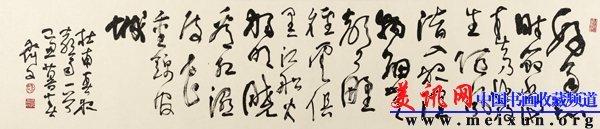 好雨知
时节当春
乃发
生随风
潜入夜润
物细无
声野
径云俱
黑江船火
独明晓
看红湿
处花
重锦官
城
杜甫春夜
喜雨一首
美讯网
中国书画收藏频道
www.meixun.org